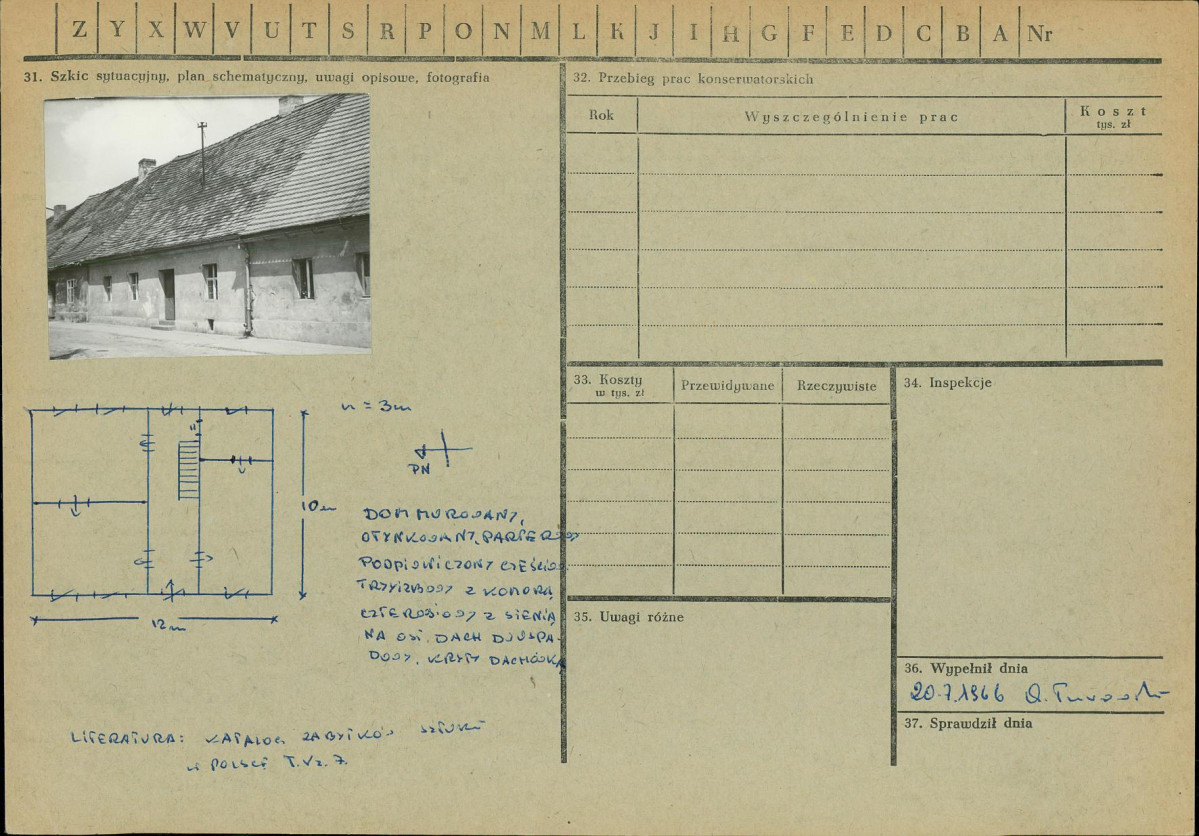 Z Y X W V U T S R P O N M L K J I H G F E D C B A Nr
31. Szkic sytuacyjny, plan schematyczny, uwagi opisowe, fotografia
n = 3m
PN
10m
12m
DOM MUROWANY,
OTYNKOWANY, PARTEROWY
PODPIWNICZONY CZĘŚCIOWO
TRZYIZBOWY Z KOMORĄ
CZTEROOSIOWY Z SIENIĄ
NA OSI. DACH DWUSPA-
DOWY, KRYTY DACHÓWKĄ
LITERATURA: KATALOG ZABYTKÓW SZTUKI
W POLSCE T. V z. 7.
32. Przebieg prac konserwatorskich
Rok
Wyszczególnienie prac
Koszt
tys. zł
33. Koszty
w tys. zł
Przewidywane
Rzeczywiste
34. Inspekcje
35. Uwagi różne
36. Wypełnił dnia
20.7.1966
37. Sprawdził dnia